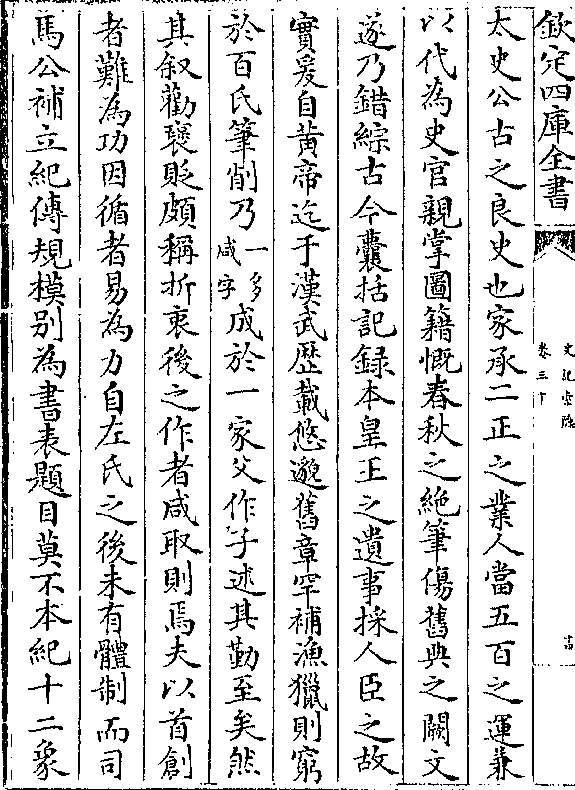 欽定四庫全書
史記索隱
卷三十
太史公古之良史也家承二正之業人當五百之運兼
以代為史官親掌圖籍慨春秋之絶筆傷舊典之闕文
遂乃錯綜古今囊括記録本皇王之遺事採人臣之故
實爰自黄帝迄于漢武歴載悠邈舊章罕補漁獵則窮
於百氏筆削乃一多咸字成於一家父作子述其勤至矣然
其叙勸襃貶頗稱折衷後之作者咸取則焉夫以首創
者難為功因循者易為力自左氏之後未有體制而司
馬公補立紀傳規模别為書表題目莫不本紀十二象